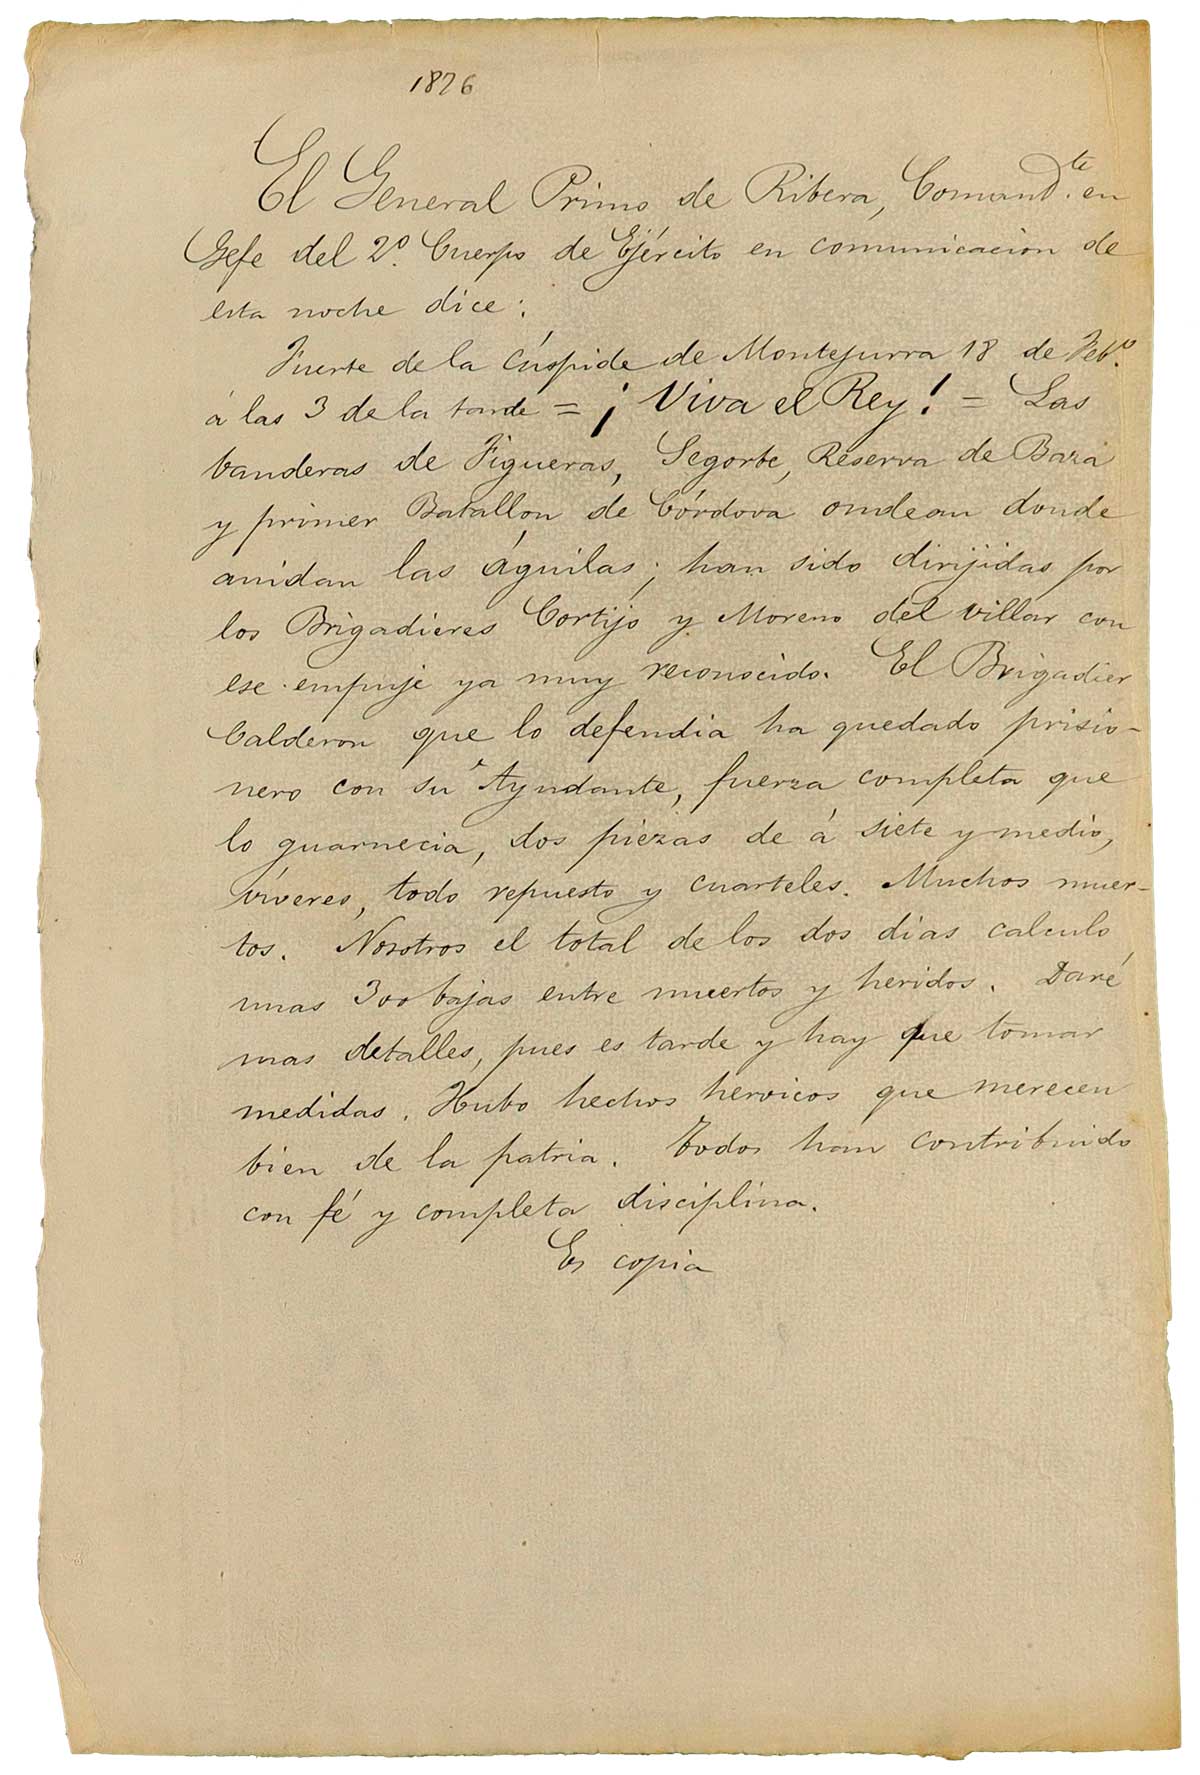 1876
El General Primo de Ribera, Comand.te en
Gefe del 2º. Cuerpo de Ejército en comunicacion de
esta noche dice:
Fuerte de la Cúspide de Montejurra 18 de Feb.o
á las 3 de la tarde = ¡Viva el Rey! = Las
banderas de Figueras, Segorbe, Reserva de Baza
y primer Batallon de Córdova ondean donde
anidan las águilas; han sido dirijidas por
los Brigadieres Cortijo y Moreno del Villar con
ese empuje ya muy reconocido. El Brigadier
Calderon que lo defendia ha quedado prisio-
nero con su Ayudante, fuerza completa que
lo guarnecia, dos piezas de á siete y medio,
víveres, todo repuesto y cuarteles. Muchos muer-
tos. Nosotros el total de los dos dias calculo
unas 300 bajas entre muertos y heridos. Daré
mas detalles, pues es tarde y hay que tomar
medidas. Hubo hechos heroicos que merecen
bien de la patria. Todos han contribuido
con fé y completa disciplina.
Es copia